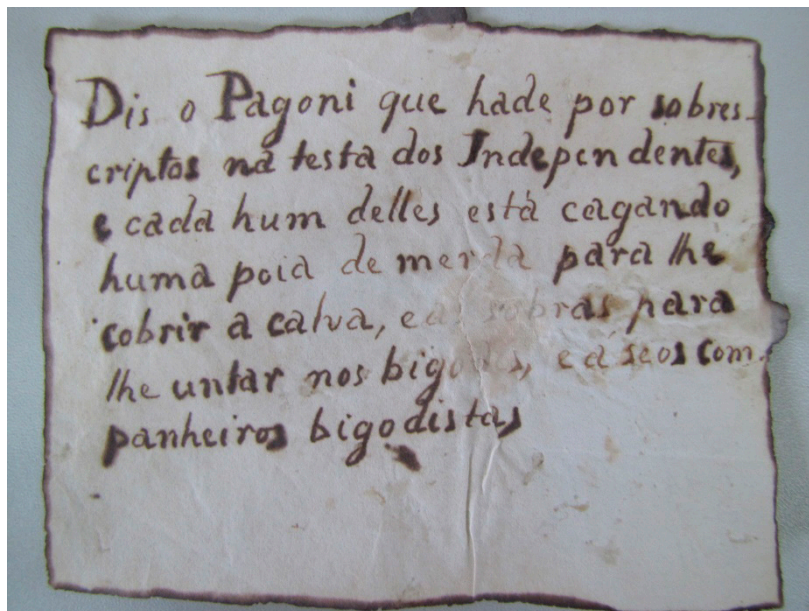 Dis o Pagoni que hade por sobres-
criptos na testa dos Independentes,
e cada hum delles está cagando
huma poia de merda para lhe
cobrir a calva, e as sobras para
lhe untar nos bigodes, e a seos com-
panheiros bigodistas